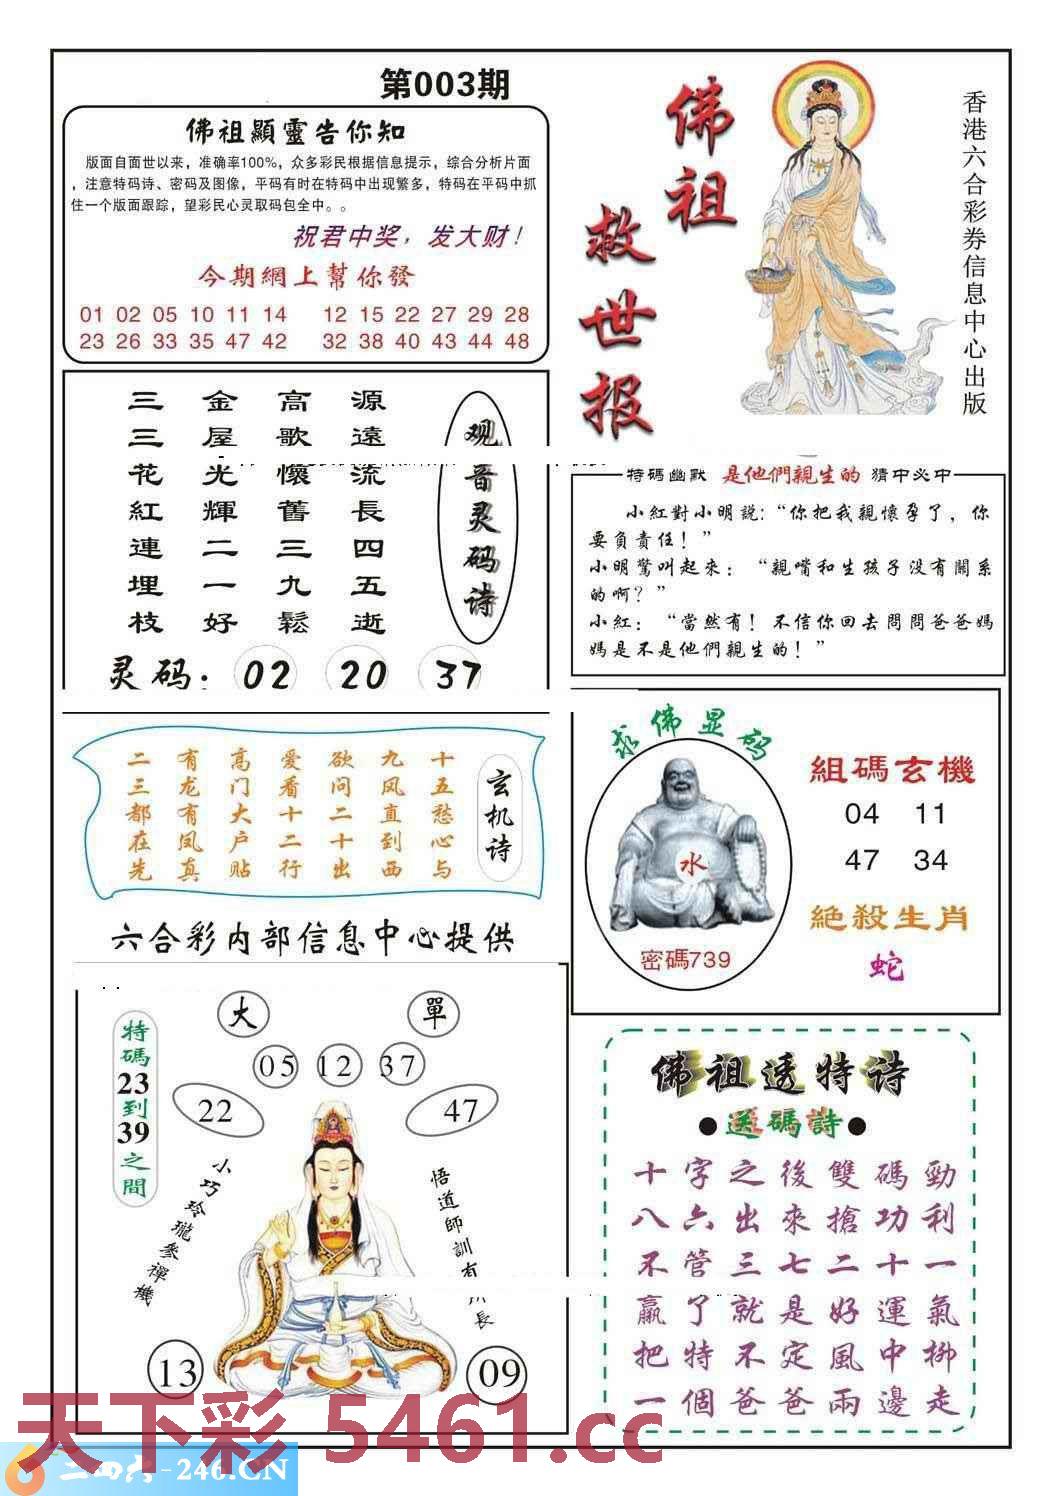 第003期
佛祖顯靈告你知
版面自面世以来，准确率100%，众多彩民根据信息提示，综合分析片面
，注意特码诗、密码及图像，平码有时在特码中出现繁多，特码在平码中抓
住一个版面跟踪，望彩民心灵取码包全中。。
祝君中奖，发大财！
今期網上幫你發
01 02 05 10 11 14 12 15 22 27 29 28
23 26 33 35 47 42 32 38 40 43 44 48
佛祖
救世报
香港六合彩券信息中心出版
观音灵码诗
源遠流長四五逝
高歌懷舊三九鬆
金屋光輝二一好
三三花紅連埋枝
灵码：02 20 37
特碼幽默 是他們親生的 猜中必中
小紅對小明說：“你把我親懷孕了，你
要負責任！”
小明驚叫起來：“親嘴和生孩子没有關系
的啊？”
小紅：“當然有！不信你回去問問爸爸媽
媽是不是他們親生的！”
玄机诗
十五愁心与
九风直到西
欲问二十出
爱看十二行
高门大户贴
有龙有凤真
二三都在先
求佛显码
水
密碼739
組碼玄機
04 11
47 34
絕殺生肖
蛇
六合彩内部信息中心提供
大 單
05 12 37
22 47
特碼23到39之間
小巧玲瓏參禪機
悟道師訓有
長
13 09
佛祖透特诗
●送碼詩●
十字之後雙碼勁
八六出來搶功利
不管三七二十一
贏了就是好運氣
把特不定風中柳
一個爸爸兩邊走
天下彩 5461.cc
二四六-246.CN